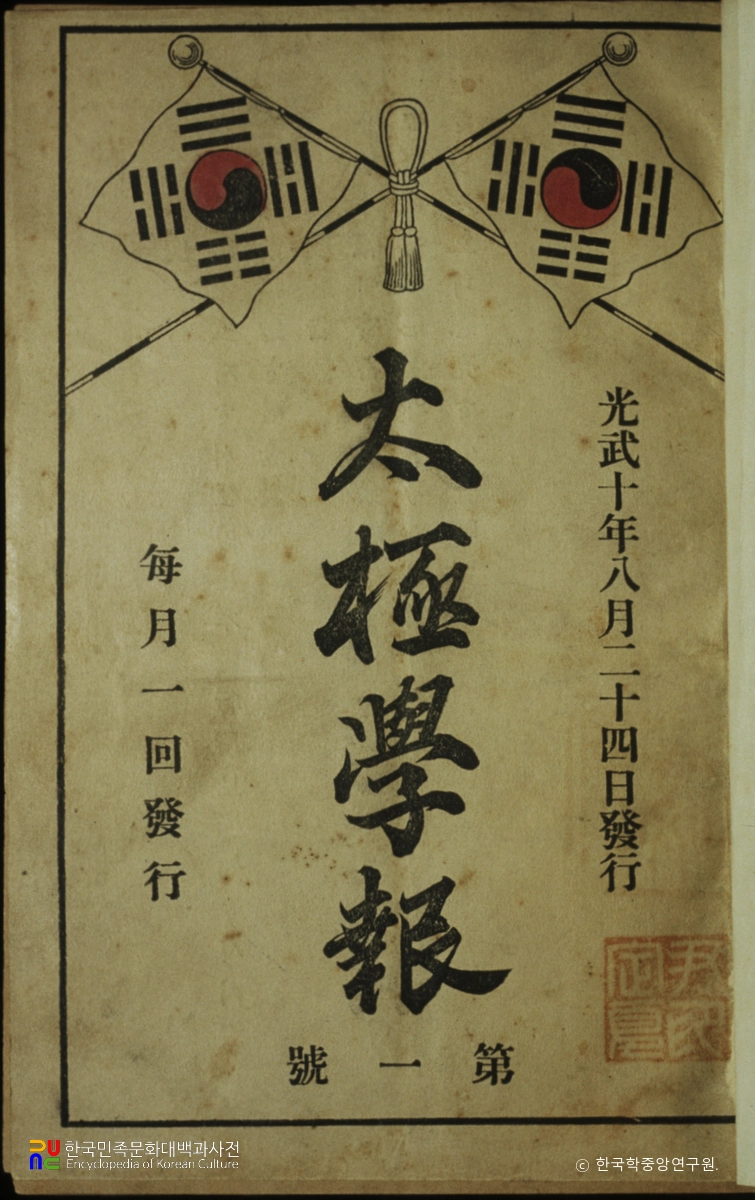 光武十年八月二十四日發行
太極學報
每月一回發行
第一號
한국민족문화대백과사전
Encyclopedia of Korean Culture
ⓒ 한국학중앙연구원.